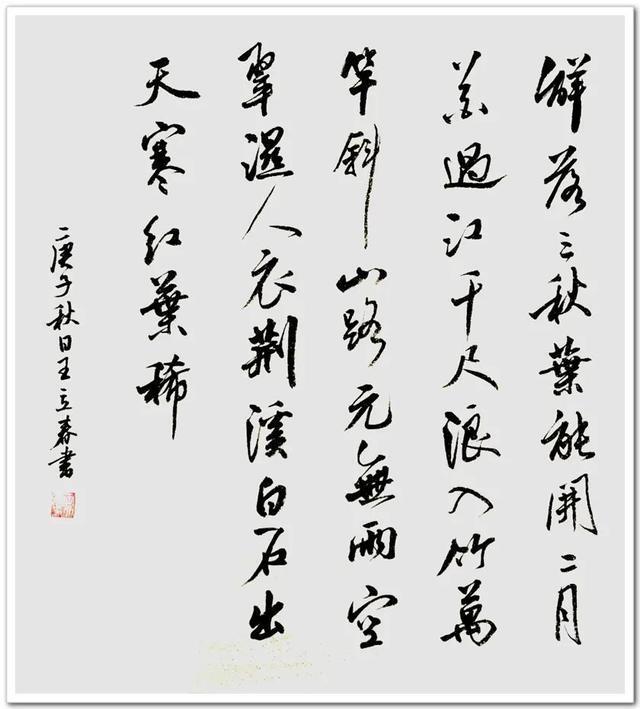 解落三秋葉能開二月
花過江千尺浪入竹萬
竿斜山路元無雨空
翠濕人衣荆溪白石出
天寒紅葉稀
庚子秋日王立春書